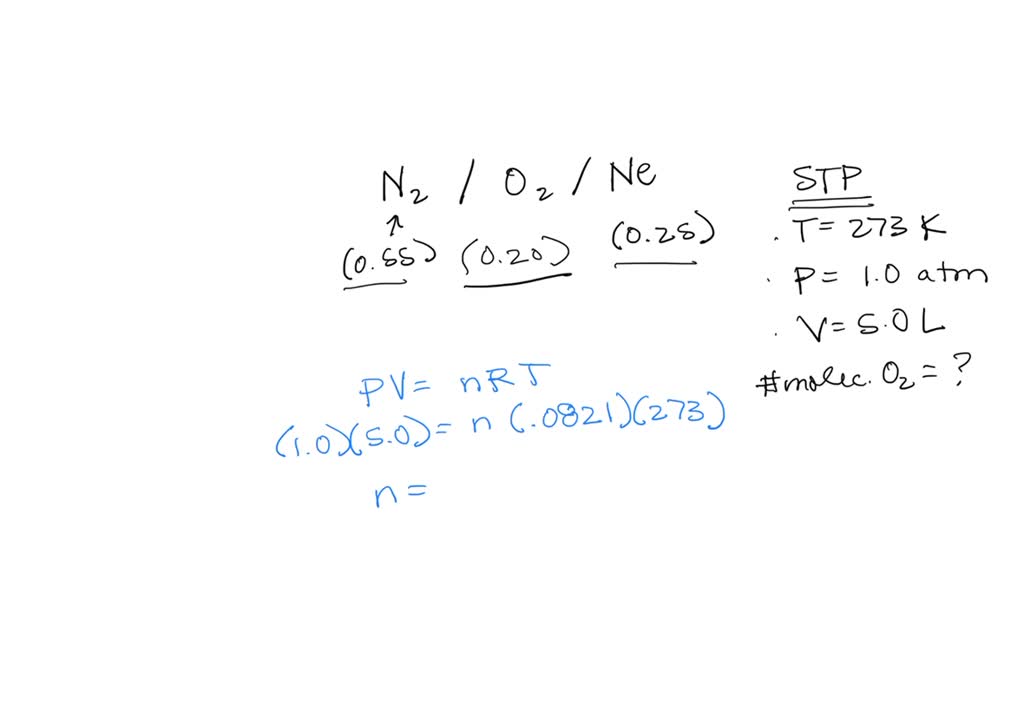 N₂ / O₂ / Ne
↑
(0.55) (0.20) (0.25)
STP
. T = 273 K
. P = 1.0 atm
. V = 5.0 L
#molec. O₂ = ?
PV = nRT
(1.0)(5.0) = n (.0821)(273)
n =